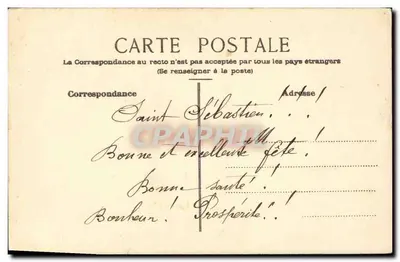 CARTE POSTALE
La Correspondance au recto n'est pas acceptée par tous les pays étrangers
(Se renseigner à la poste)
Correspondance
Adresse
Saint Sébastien . . . !
M !
Bonne et excellente fête !
Bonne santé !
Bonheur ! Prospérité !